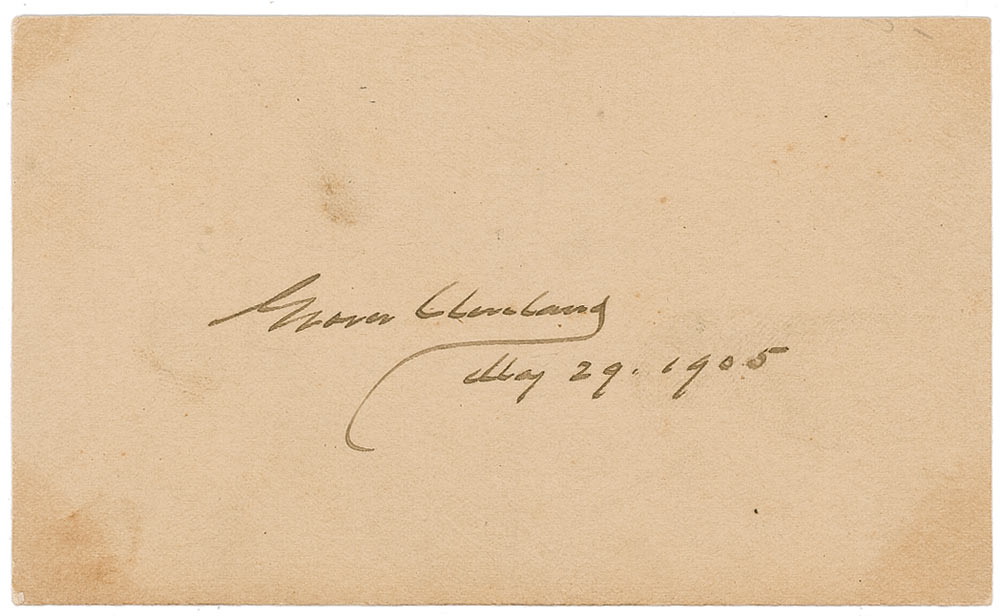 Grover Cleveland
May 29. 1905